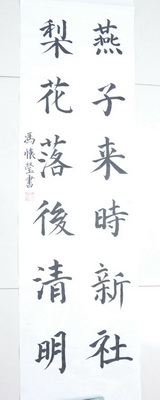 燕子来時新社
梨花落後清明
馮懐瑩書